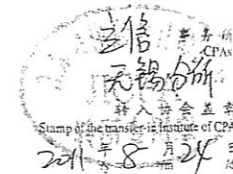 立信 事务所
CPAs
无锡分所
转入协会盖章
Stamp of the transfer-in Institute of CPA
2011年8月24日